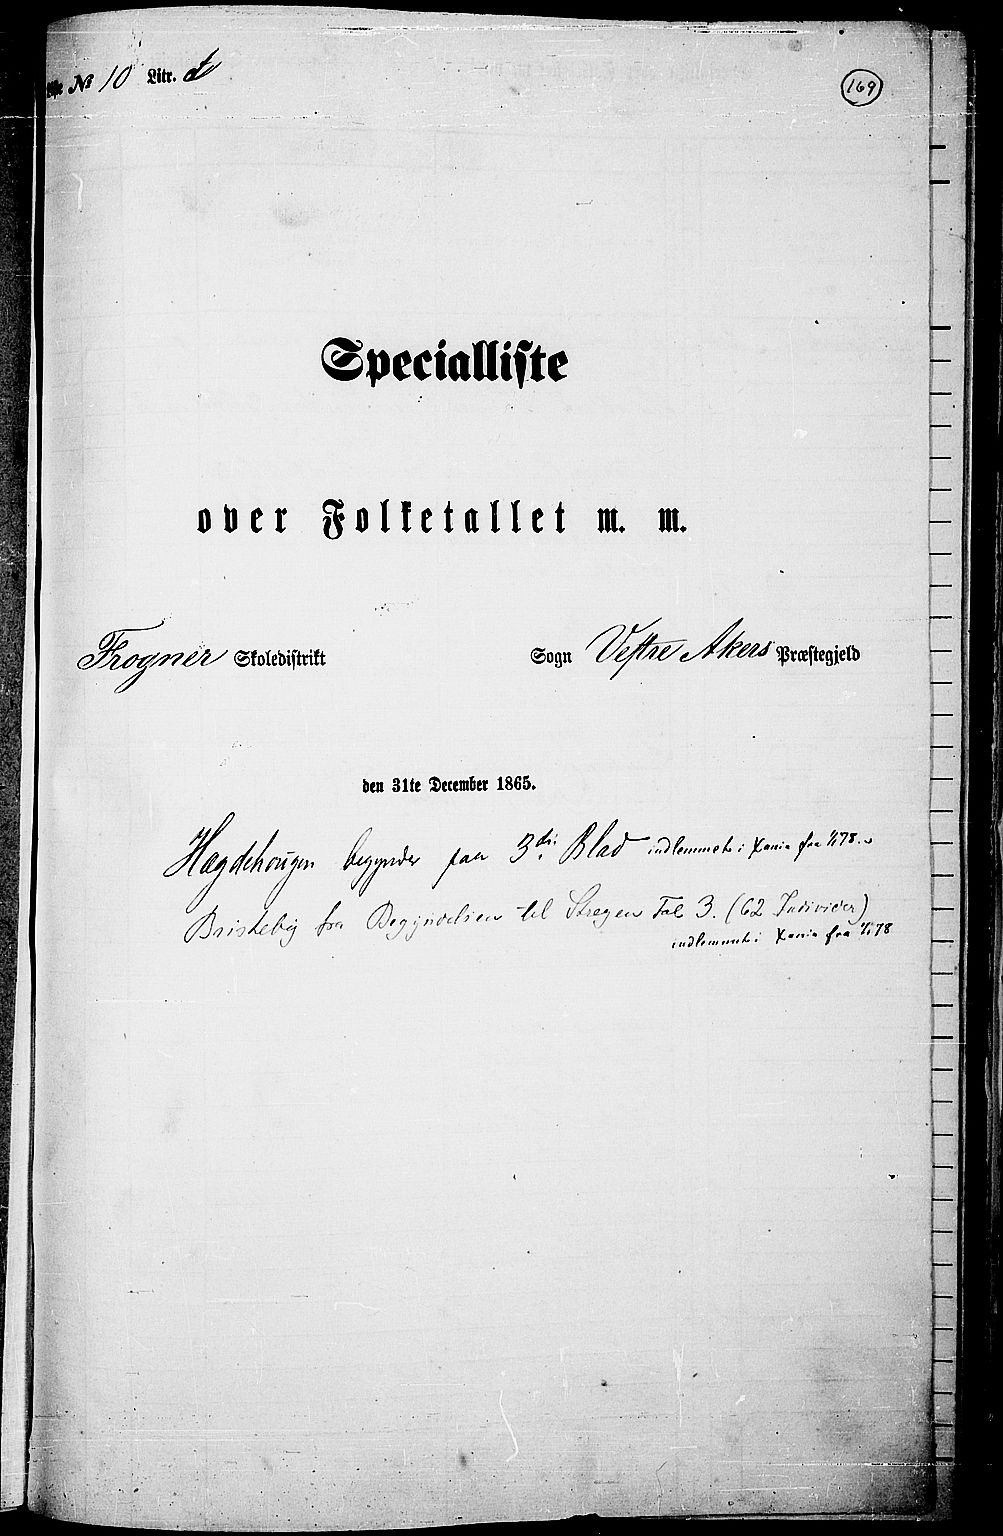 № 10 Litr. d
169
Specialliste
over Folketallet m. m.
Frogner Skoledistrikt Sogn Vestre Akers Præstegjeld
den 31te December 1865.
Hægdehougen begynder paa 3die Blad indlemmet i Xania fra 1/1 78.
Briskeby fra Begyndelsen til Stregen Fol 3. (62 Individer)
indlemmet i Xania fra 1/1 78